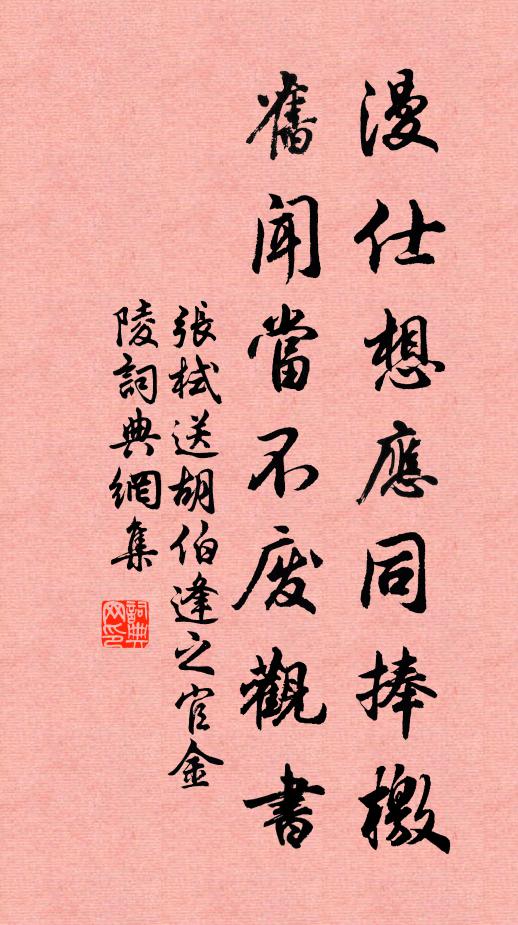 漫仕想應同捧檄
舊聞當不废觀書
張栻送胡伯逢之官金
陵詞典網集
詞典网印